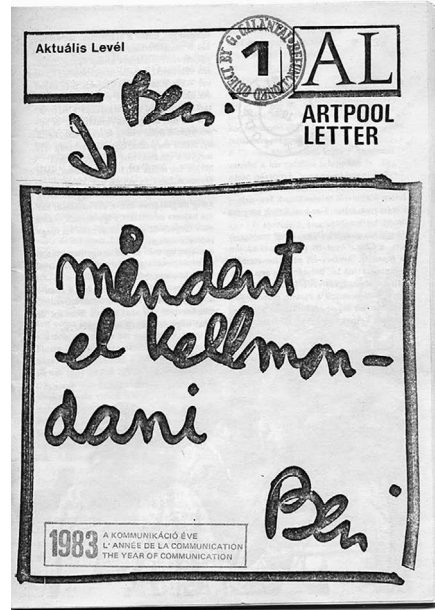 Aktuális Levél
REFUNCTIONED OBJECT BY G. GALÁNTAI
1
AL
ARTPOOL
LETTER
Ben
mindent
el kellmon-
dani
Ben
1983
A KOMMUNIKÁCIÓ ÉVE
L'ANNÉE DE LA COMMUNICATION
THE YEAR OF COMMUNICATION